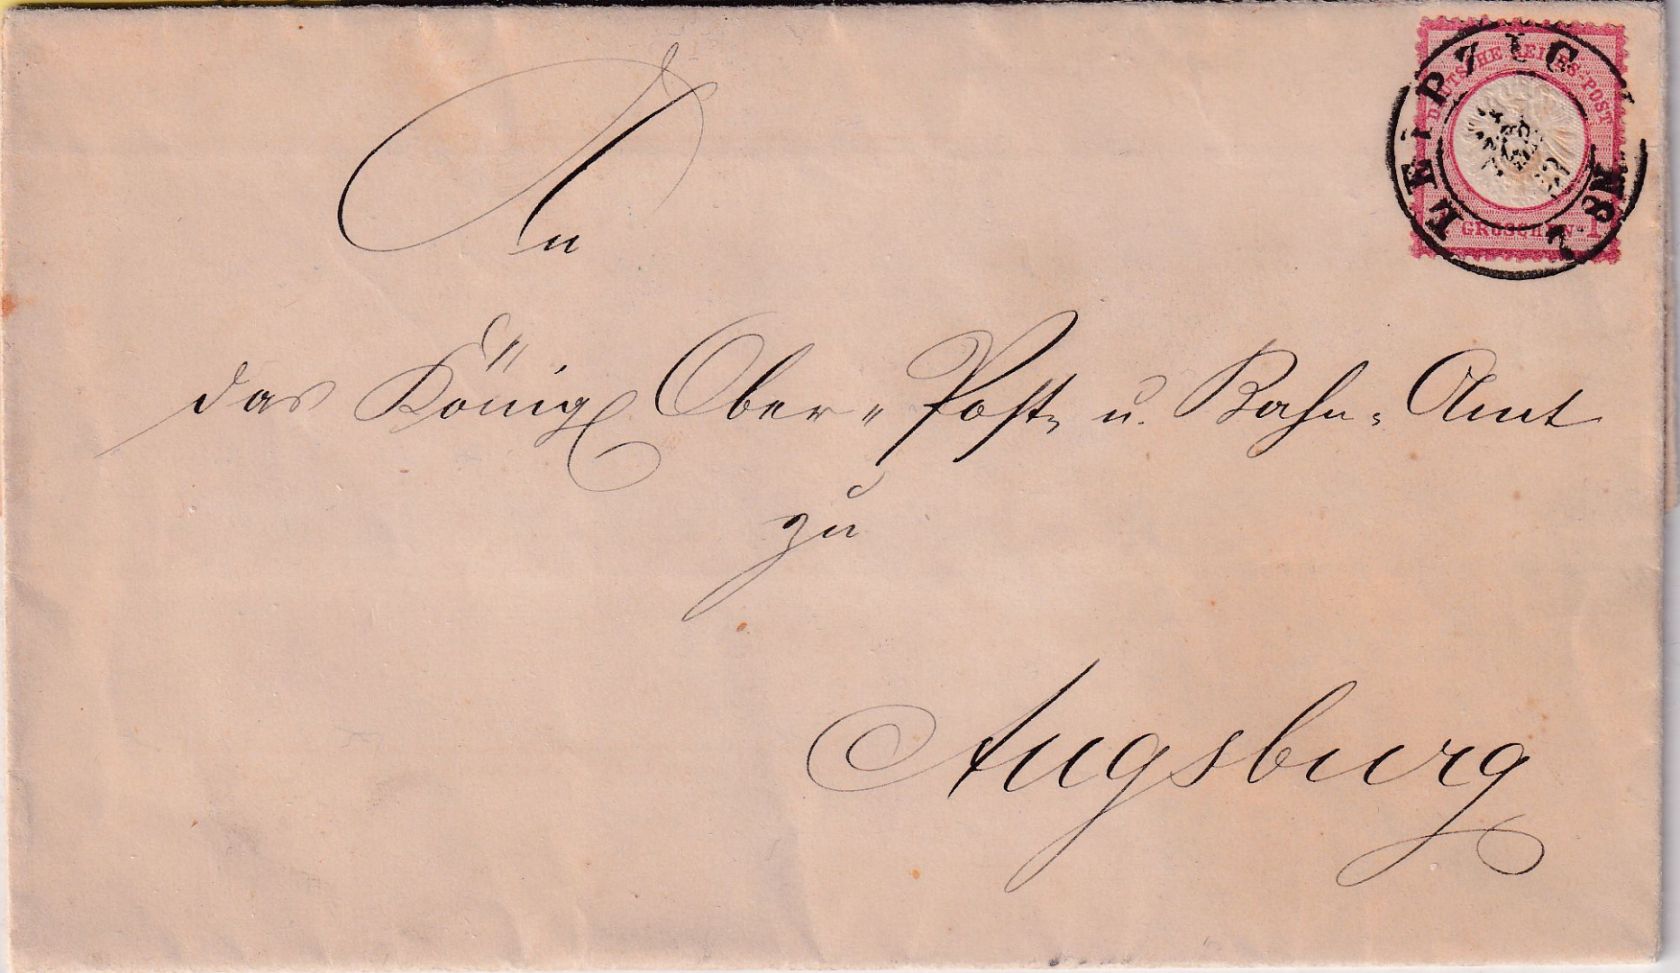 DEUTSCHE REICHS-POST
1 GROSCHEN 1
LEIPZIG
An
das Königl Ober-Post- u. Bahn-Amt
zu
Augsburg